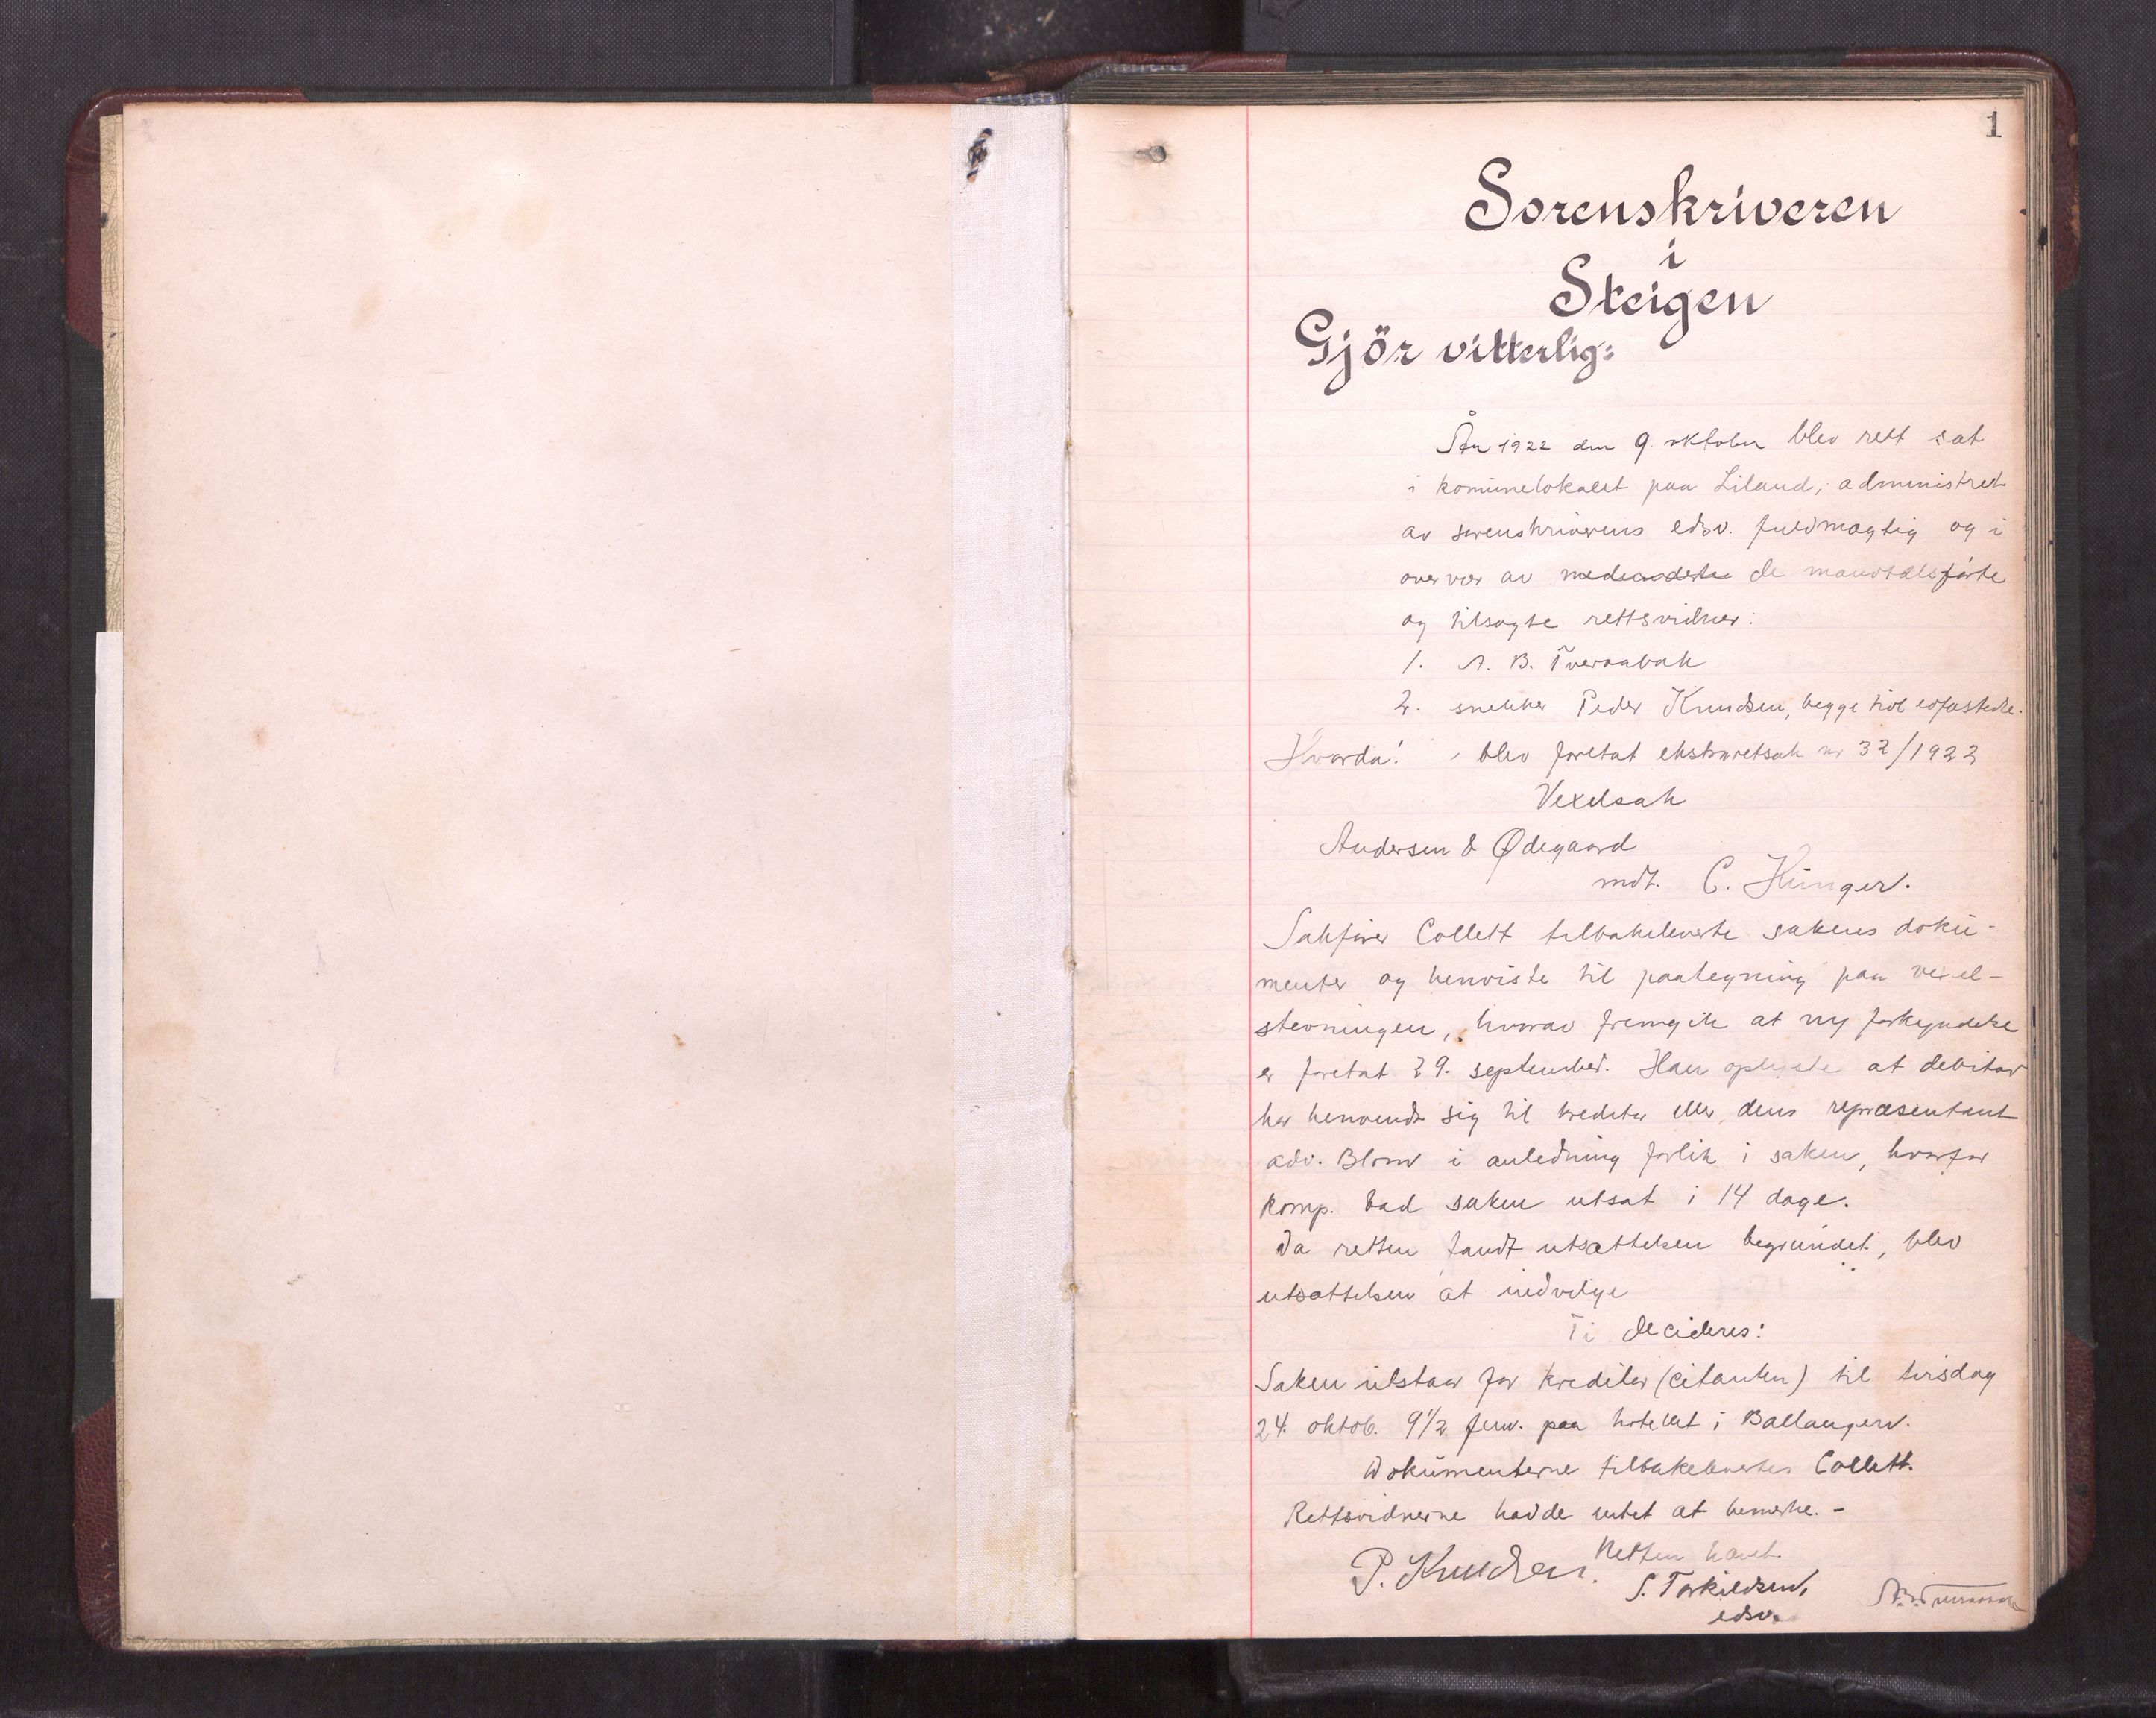 1
Sorenskriveren
i
Steigen
Gjör vitterlig:
År 1922 den 9. oktober blev rett sat
i komünelokalet paa Liland, administret
av sorenskriverens edsv. fuldmægtig og i
overvær av de mandtalsførte
og tilsagte rettsvidner:
1. A. B. Tveraabak
2. snekker Peder Knudsen, begge edfæstede.
Hvorda! blev foretat ekstraretsak nr 32/1922
Vexelsak
Andersen & Ødegaard
mdt. C. Hünger.
Sakfører Collett tilbakeleverte sakens dokü-
menter og henviste til paategning paa vexel-
stevningen, hvorav fremgik at ny forkyndelse
er foretat 29. september. Han oplyste at debitor
har henvendt sig til kreditor eller dens repræsentant
adv. Blom i anledning forlik i saken, hvorfor
komp. bad saken utsat i 14 dage.
Da retten fandt utsættelsen begründet, blev
utsættelsen at indvilge
Ti decideres:
Saken utstaar for kreditor (citanten) til tirsdag
24. oktob. 9½ form. paa hotellet i Ballangen.
Dokümenterne tilbakelevertes Collett.
Rettsvidnerne hadde intet at bemerke. -
Retten hævet.
P. Knudsen.
S. Torkildsen,
edsv.